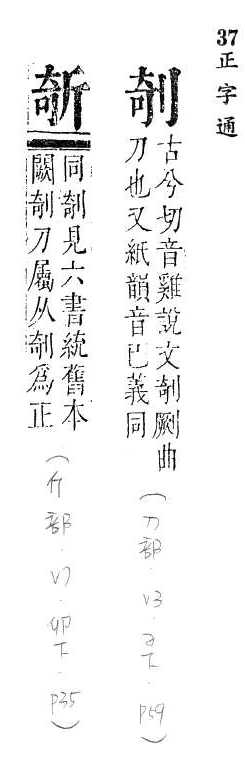 37正字通
剞
古兮切音雞說文剞劂曲
刀也又紙韻音已義同
(刀部·V3·子下·P59)
同剞見六書統舊本
闕剞刀屬从剞爲正
(斤部·V7·卯下·P35)